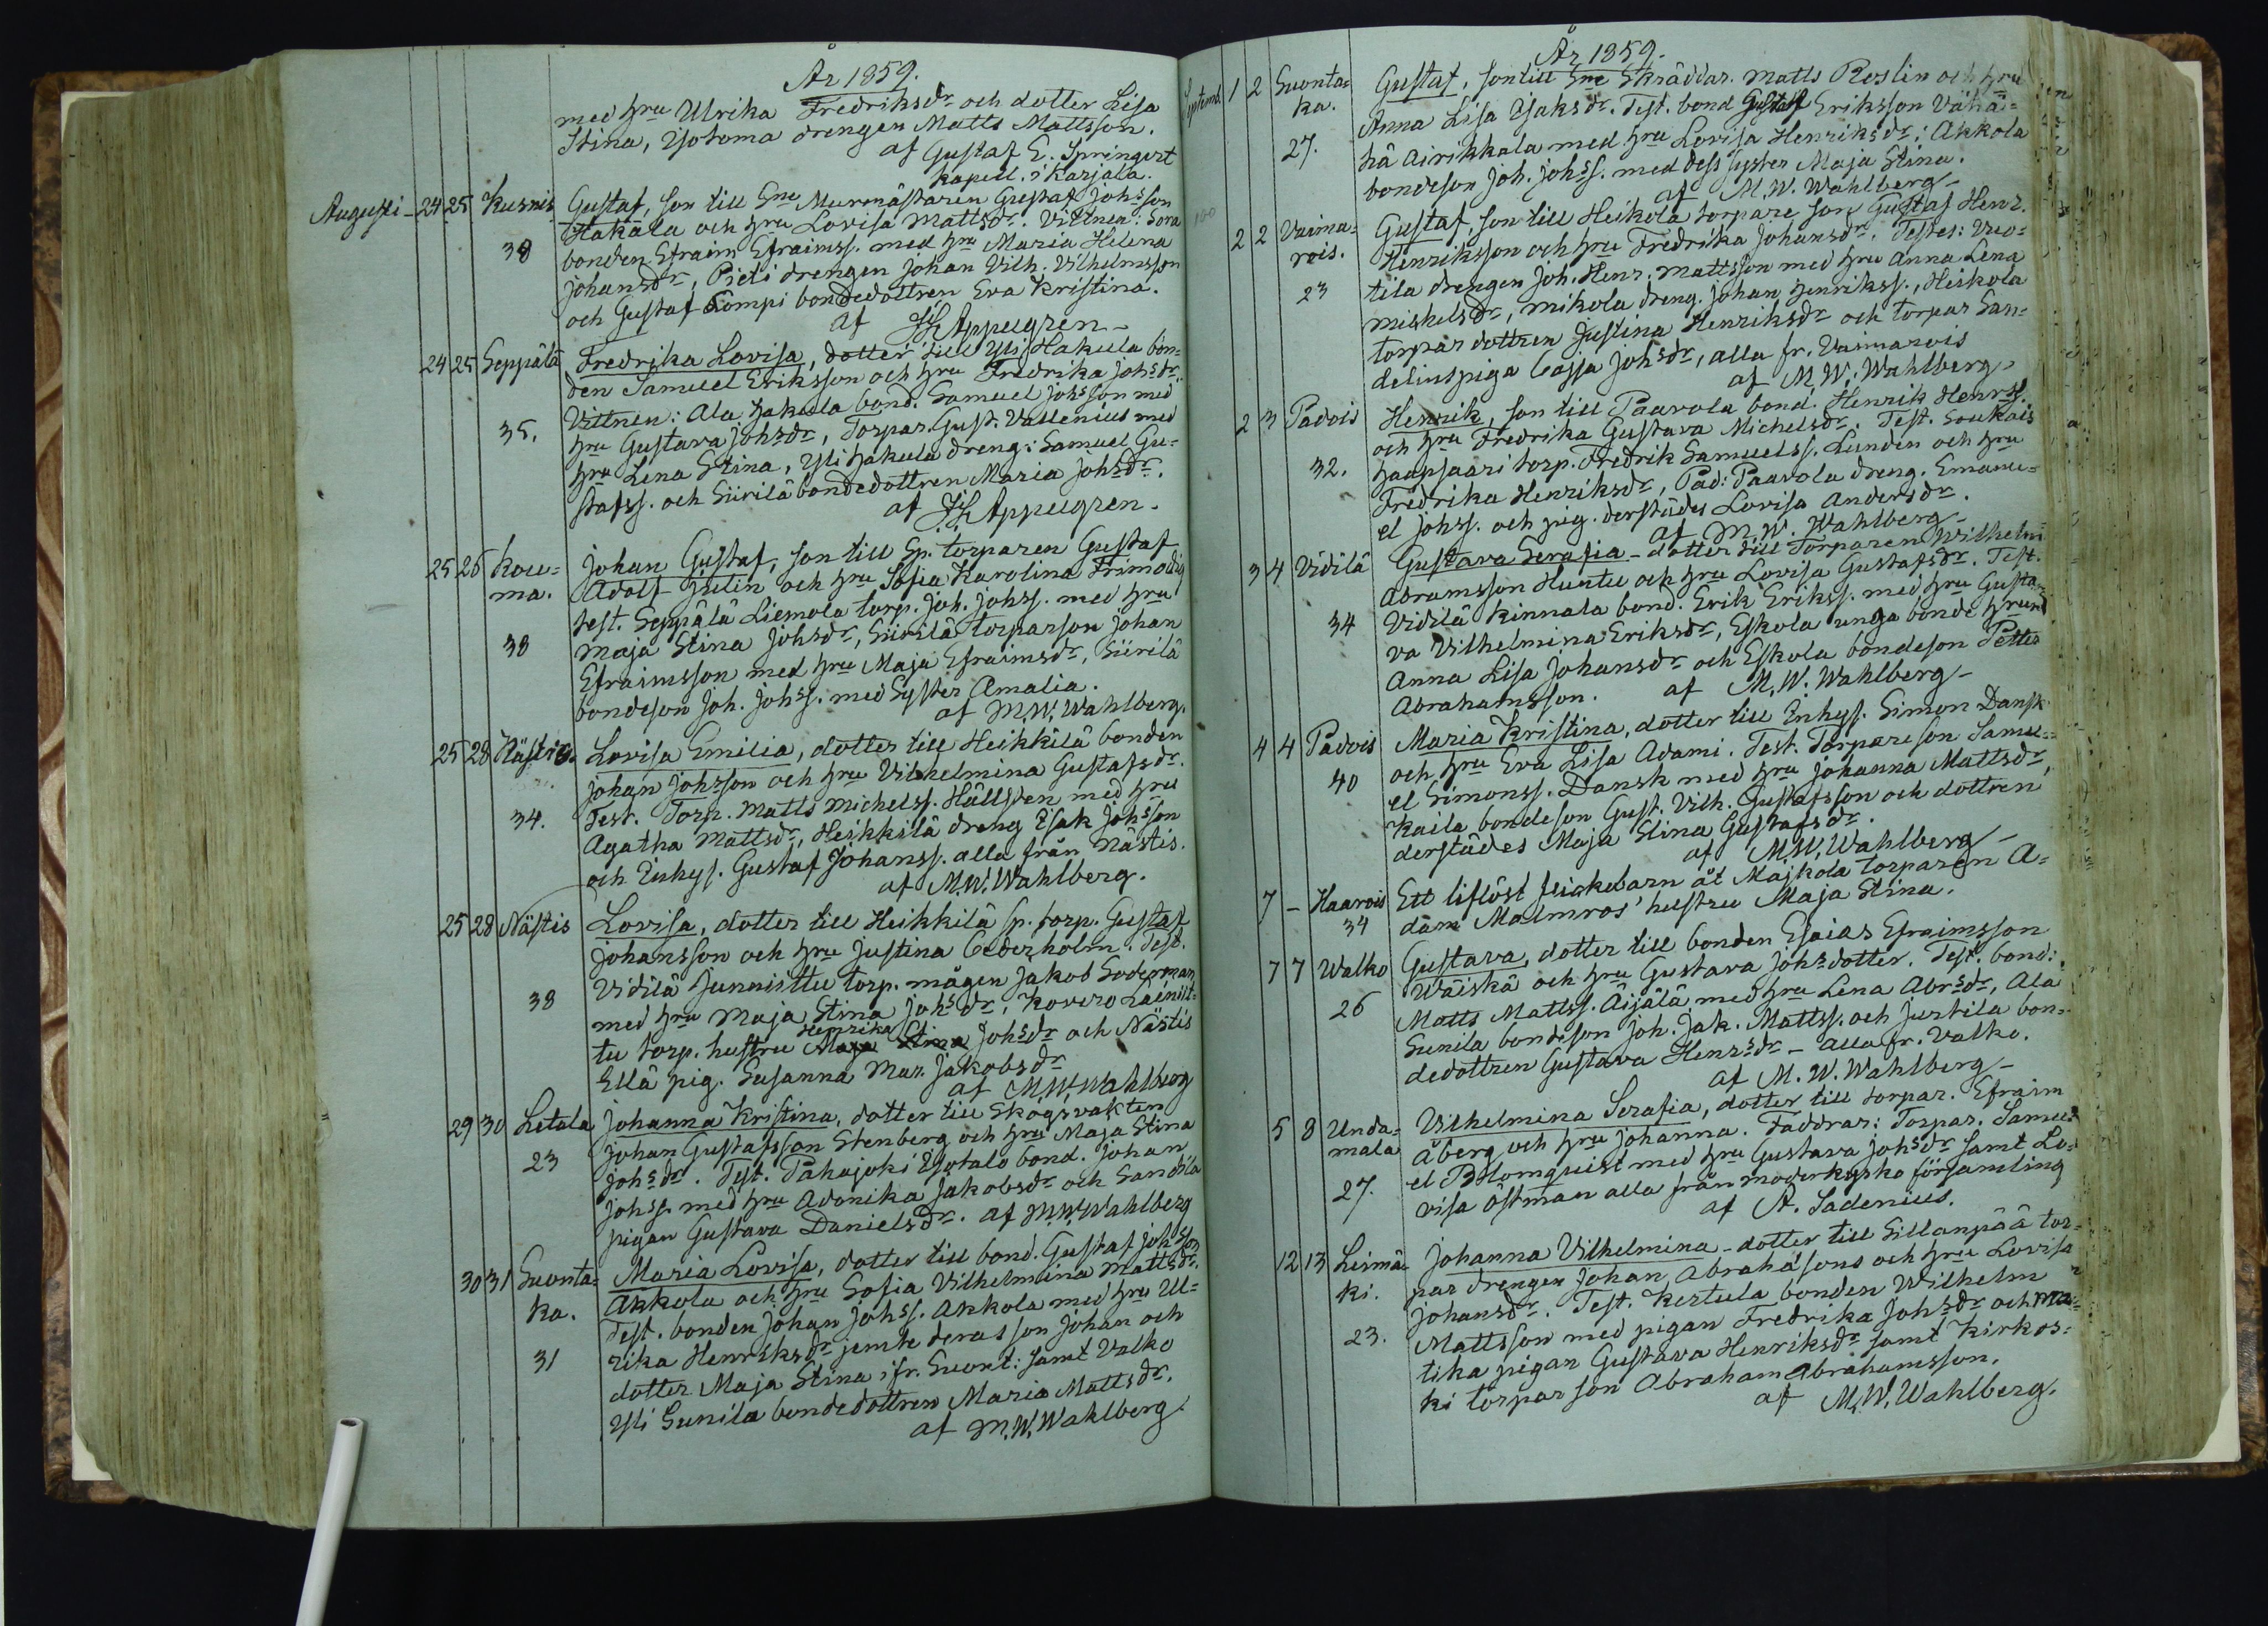 År 1859.
med hru Ulrika Fredriksdr och dotter Lisa
Stina, Isotoma drengen Matts Mattsson.
af Gustaf E. Springert
kapell. i Karjala.
Augusti - 24 25 Kusnis Gustaf, son till Sne Murmästaren Gustaf Johsson
Hakala och hru Lovisa Mattsdr. Vittnen: Sora
38 bonden Efraim Efraimss. med hru Maria Helena
Johansdr, Pieti drengen Johan Vilh. Vilhelmsson
och Gustaf Lompi bondedottren Eva Kristina.
af Appelgren -
24 25 Seppälä Fredrika Lovisa, dotter till Yli Hakula bon=
den Samuel Eriksson och hru Fredrika Johsdr.
Vittnen: Ala Hakula bond. Samuel Johsson med
35. hru Gustava Johsdr, Torpar. Gust. Vallenius med
hru Lena Stina, Yli Hakula dreng: Samuel Gu=
stafss. och Siirilä bondedottren Maria Johsdr.
af Appelgren -
25 26 Kou= Johan Gustaf, son till Sp. torparen Gustaf
ma. Adolf Julin och hru Sofia Karolina Frimodig
test. Seppälä Liemola torp. Joh. Johss. med hru
38 Maja Stina Johsdr, Siirilä torparson Johan
Efraimsson med hru Maja Efraimsdr, Siirilä
bondeson Joh. Johss. med Syster Amalia.
af M.W. Wahlberg.
25 28 Nästis. Lovisa Emilia, dotter till Heikkilä bonden
Johan Johsson och hru Vilhelmina Gustafsdr.
34. Test. Torp. Matts Michelss. Hällsten med hru
Agatha Mattsdr, Heikkilä dreng Isak Johsson
och Inhys. Gustaf Johanss. alla från Nästis.
af M.W. Wahlberg.
25 28 Nästis Lovisa, dotter till Heikkilä sp. torp. Gustaf
Johansson och hru Justina Cederholm. Test.
Vidilä Junnittu torp. mågen Jakob Soderman
38 med hru Maja Stina Johsdr, Kovero
tu torp. hustru Henrika Johsdr och Nästis
Ellä pig. Susanna Mar. Jakobsdr
af M.W. Wahlberg
29 30 Letala Johanna Kristina, dotter till Skogsvakten
23 Johan Gustafsson Stenberg och hru Maja Stina
Johsdr. Test. Pahajoki Isotalo bond. Johan
Johss. med hru Adonika Jakobsdr och Sandila
pigan Gustava Danielsdr. af M.W. Wahlberg
30 31 Suonta= Maria Lovisa, dotter till bond. Gustaf Johsson
ka. Akkola och hru Sofia Vilhelmina Mattsdr.
Test. bonden Johan Johss. Akkola med hru Ul=
31 rika Henriksdr jemte deras son Johan och
dotter Maja Stina ifr. Suont: samt Valko
Yli Sunila bondedottren Maria Mattsdr.
af M.W. Wahlberg
År 1859.
Septemb. 1 2 Suonta= Gustaf, son till Sne Skräddar. Matts Roslin och hru
ka. Anna Lisa Isaksdr. Test. bond Gustaf Eriksson Vähä=
27. hä Airikkala med hru Lovisa Henriksdr; Akkola
bondeson Joh. Johss. med dess syster Maja Stina.
af M.W. Wahlberg -
2 2 Vaima= Gustaf, son till Heikola torpare son Gustaf Henr.
rois. Henriksson och hru Fredrika Johansdr, Testes: Uro=
23 tila drengen Joh. Henr. Mattsson med hru Anna Lena
Michelsdr, Mikola dreng. Johan Henrikss., Heikola
torpar dottren Justina Henriksdr och torpar San=
delinspiga Cajsa Johsdr, alla fr. Vaimarois
af M.W. Wahlberg -
2 3 Padois Henrik, son till Paavola bond. Henrik Henrss.
och hru Fredrika Gustava Michelsdr. Test. Soukais
32. Haapsaari torp. Fredrik Samuelss. Lunden och hru
Fredrika Henriksdr, Pad: Paavola dreng. Emanu=
el Johss. och pig. derstädes Lovisa Andersdr.
af M.W. Wahlberg -
3 4 Vidilä Gustava Serafia - dotter till Torparen Wilhelm
Abramsson Huntu och hru Lovisa Gustafsdr. Test.
34 Vidilä Kinnala bond. Erik Erikss. med hru Gusta=
va Vilhelmina Eriksdr, Eskola unga bonde hrun
Anna Lisa Johansdr och Eskola bondeson Petter
Abrahamsson. af M.W. Wahlberg -
4 4 Padois Maria Kristina, dotter till Inhys. Simon Dansk
40 och hru Eva Lisa Adami. Test. Torpareson Samu=
el Simonss. Dansk med hru Johanna Mattsdr,
Kaila bondeson Gust. Vilh. Gustafsson och dottren
derstädes Maja Stina Gustafsdr.
af M.W. Wahlberg -
7 - Haarois Ett liflöst flickebarn åt Majkola torparen A=
34 dam Malmros' hustru Maja Stina.
7 7 Walko Gustava, dotter till bonden Esaias Efraimsson
Wäiskä och hru Gustava Johsdotter. Test. bond.
26 Matts Mattss. Äijälä med hru Lena Abrsdr, Ala
Sunila bondeson Joh. Jak. Mattss. och Juttila bon=
dedottren Gustava Henrsdr - alla fr. Valko.
af M.W. Wahlberg -
5 8 Unda= Vilhelmina Serafia, dotter till torpar. Efraim
mala Åberg och hru Johanna. Faddrar: Torpar. Samu=
27. el Blomquist med hru Gustava Johsdr samt Lo=
visa Östman alla från moderkyrko församling
af A. Sadenius.
12 13 Leinmä Johanna Vilhelmina - dotter till Sillanpää tor=
ki. par drengen Johan Abrahàsons och hru Lovisa
Johansdr. Test. Kertula bonden Wilhelm
23. Mattsson med pigan Fredrika Johsdr och Ma=
tika pigan Gustava Henriksdr samt Kirkos=
ki torpar son Abraham Abrahamsson.
af M.W. Wahlberg.